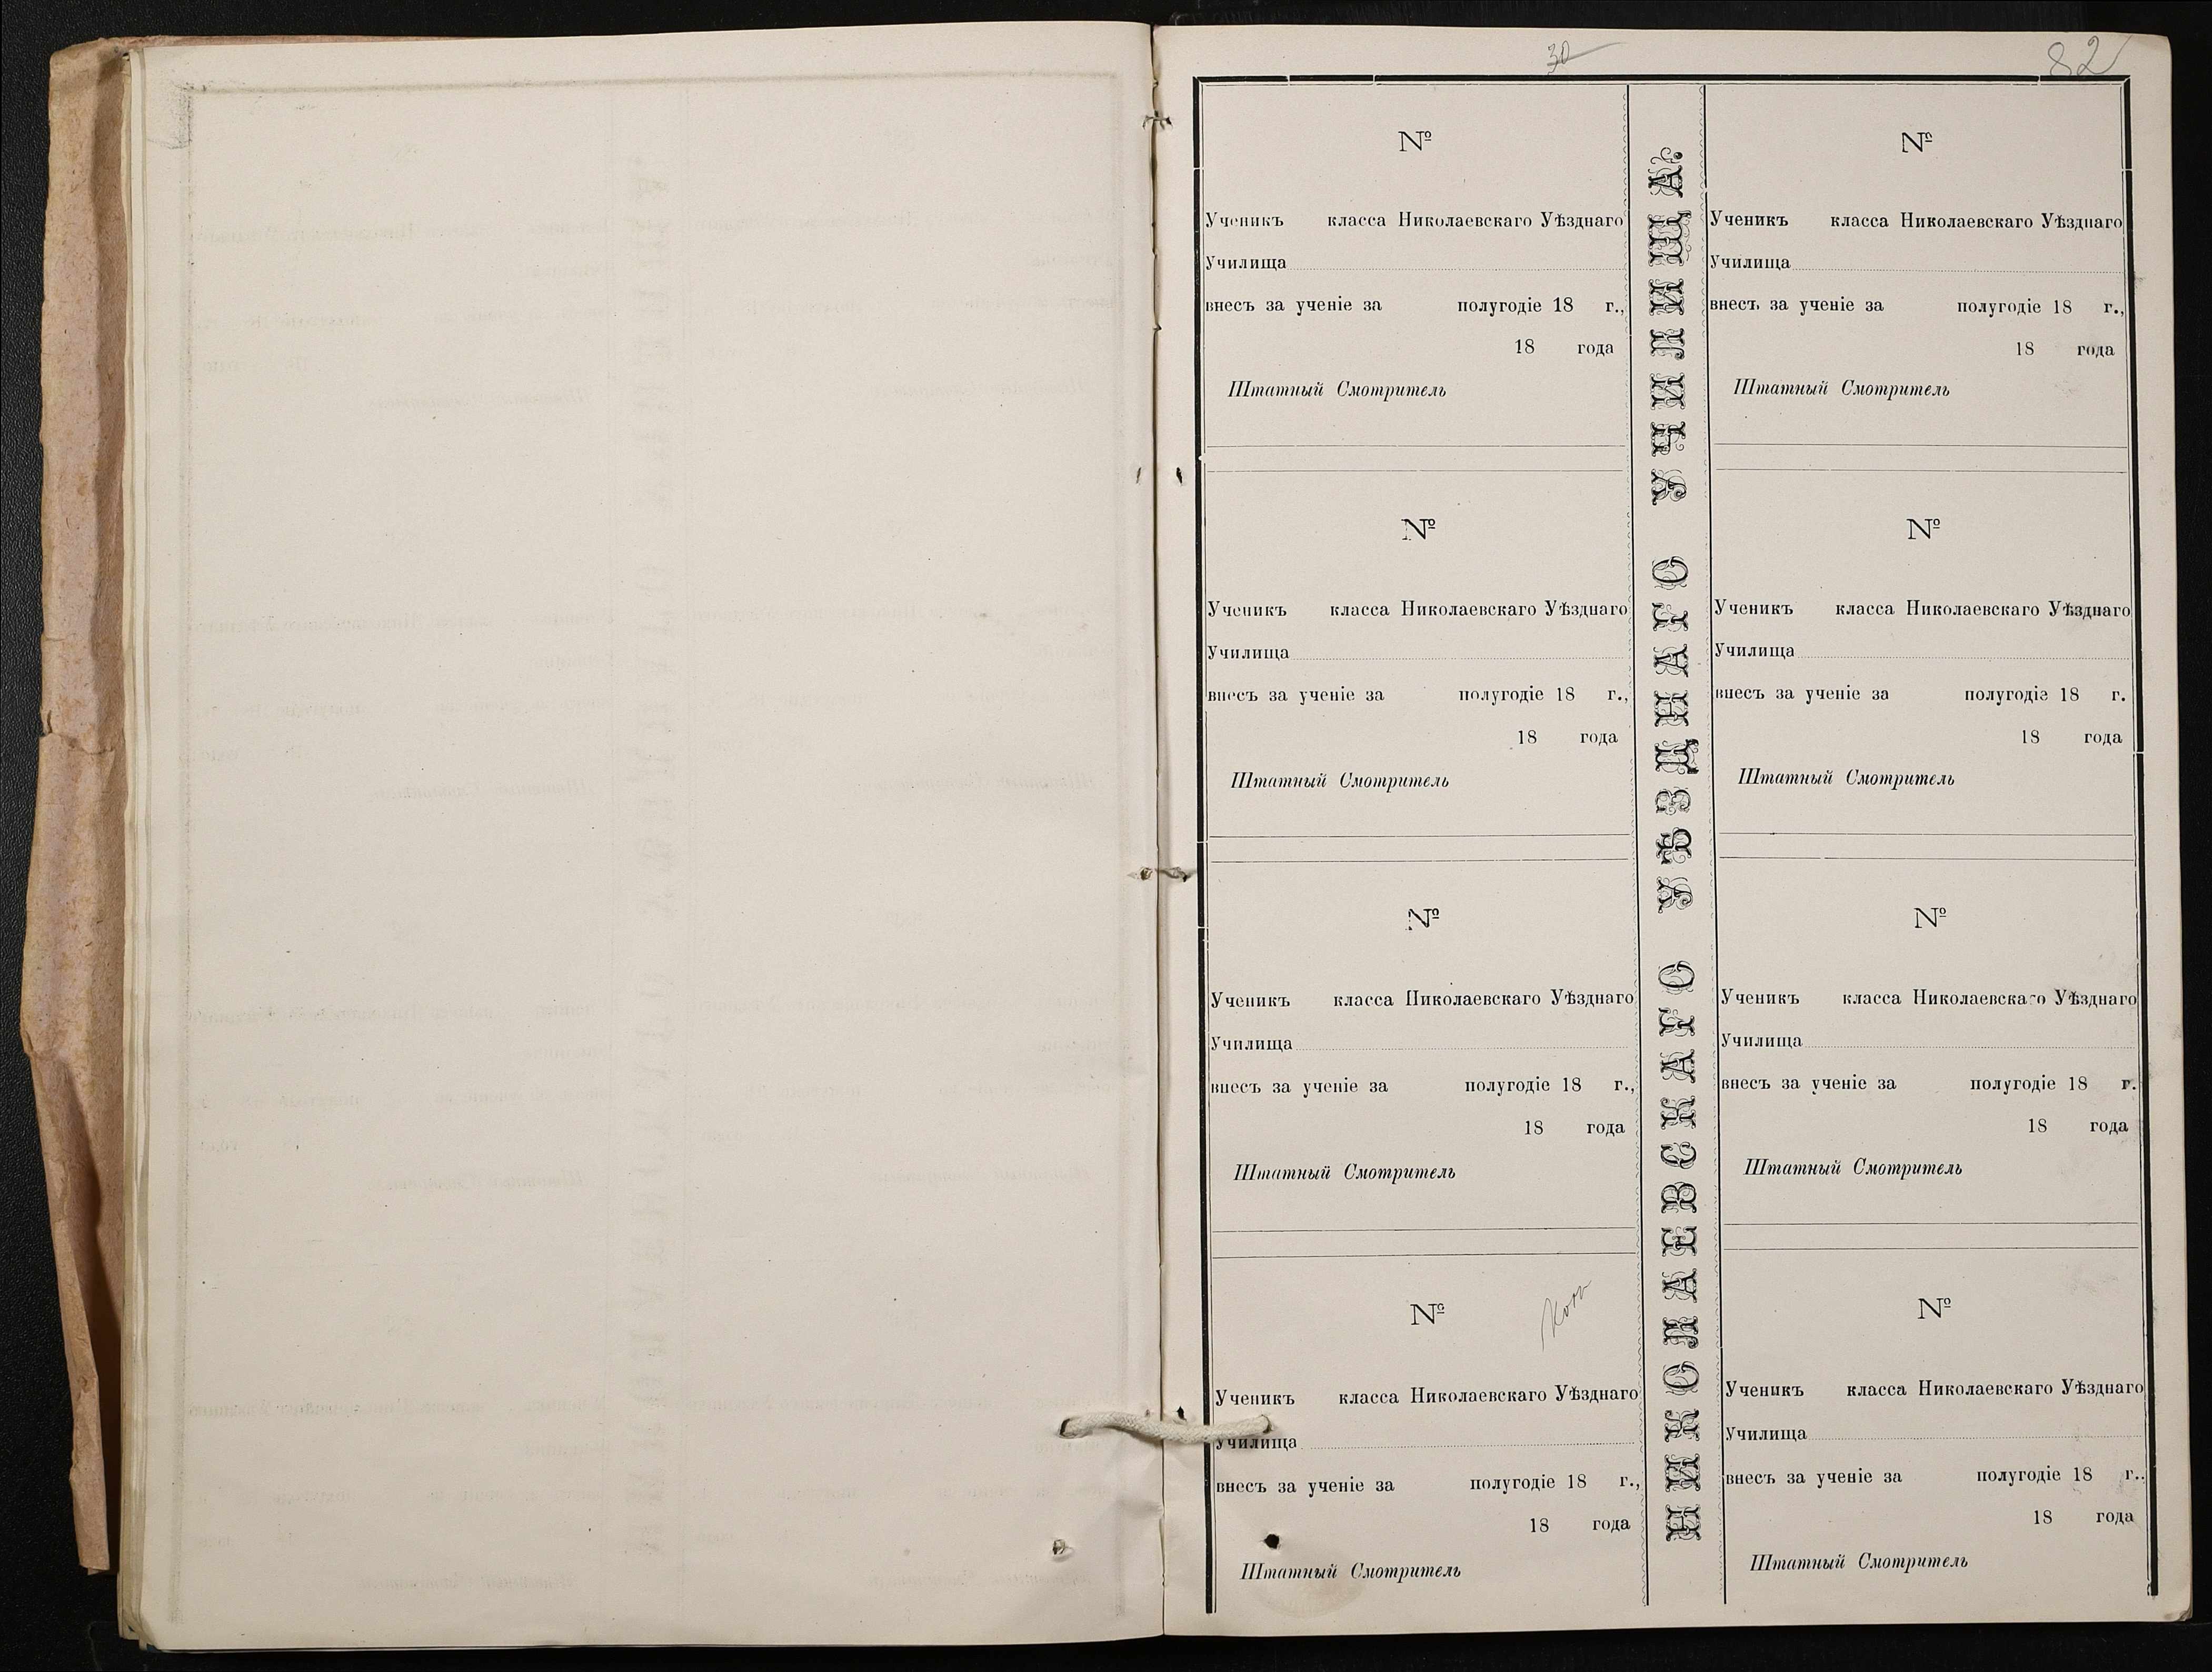 30
82
№
Ученикъ класса Николаевскаго Уѣзднаго
Училища
внесъ за ученіе за полугодіе 18 г.,
18 года
Штатный Смотритель
№
Ученикъ класса Николаевскаго Уѣзднаго
Училища
внесъ за ученіе за полугодіе 18 г.,
18 года
Штатный Смотритель
№
Ученикъ класса Николаевскаго Уѣзднаго
Училища
внесъ за ученіе за полугодіе 18 г.,
18 года
Штатный Смотритель
№
Ученикъ класса Николаевскаго Уѣзднаго
Училища
внесъ за ученіе за полугодіе 18 г.,
18 года
Штатный Смотритель
НИКОЛАЕВСКАГО УѢЗДНАГО УЧИЛИЩА.
№
Ученикъ класса Николаевскаго Уѣзднаго
Училища
внесъ за ученіе за полугодіе 18 г.,
18 года
Штатный Смотритель
№
Ученикъ класса Николаевскаго Уѣзднаго
Училища
внесъ за ученіе за полугодіе 18 г.
18 года
Штатный Смотритель
№
Ученикъ класса Николаевскаго Уѣзднаго
Училища
внесъ за ученіе за полугодіе 18 г.
18 года
Штатный Смотритель
№
Ученикъ класса Николаевскаго Уѣзднаго
Училища
внесъ за ученіе за полугодіе 18 г..
18 года
Штатный Смотритель